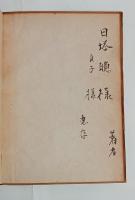 日塔聰様
貞子様
恵存
著者